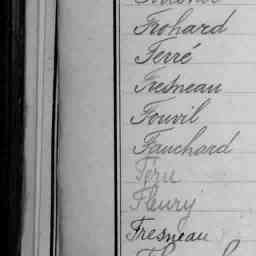 Frohard
Ferré
Fresneau
Fouvil
Fauchard
Féru
Fleury
Fresneau